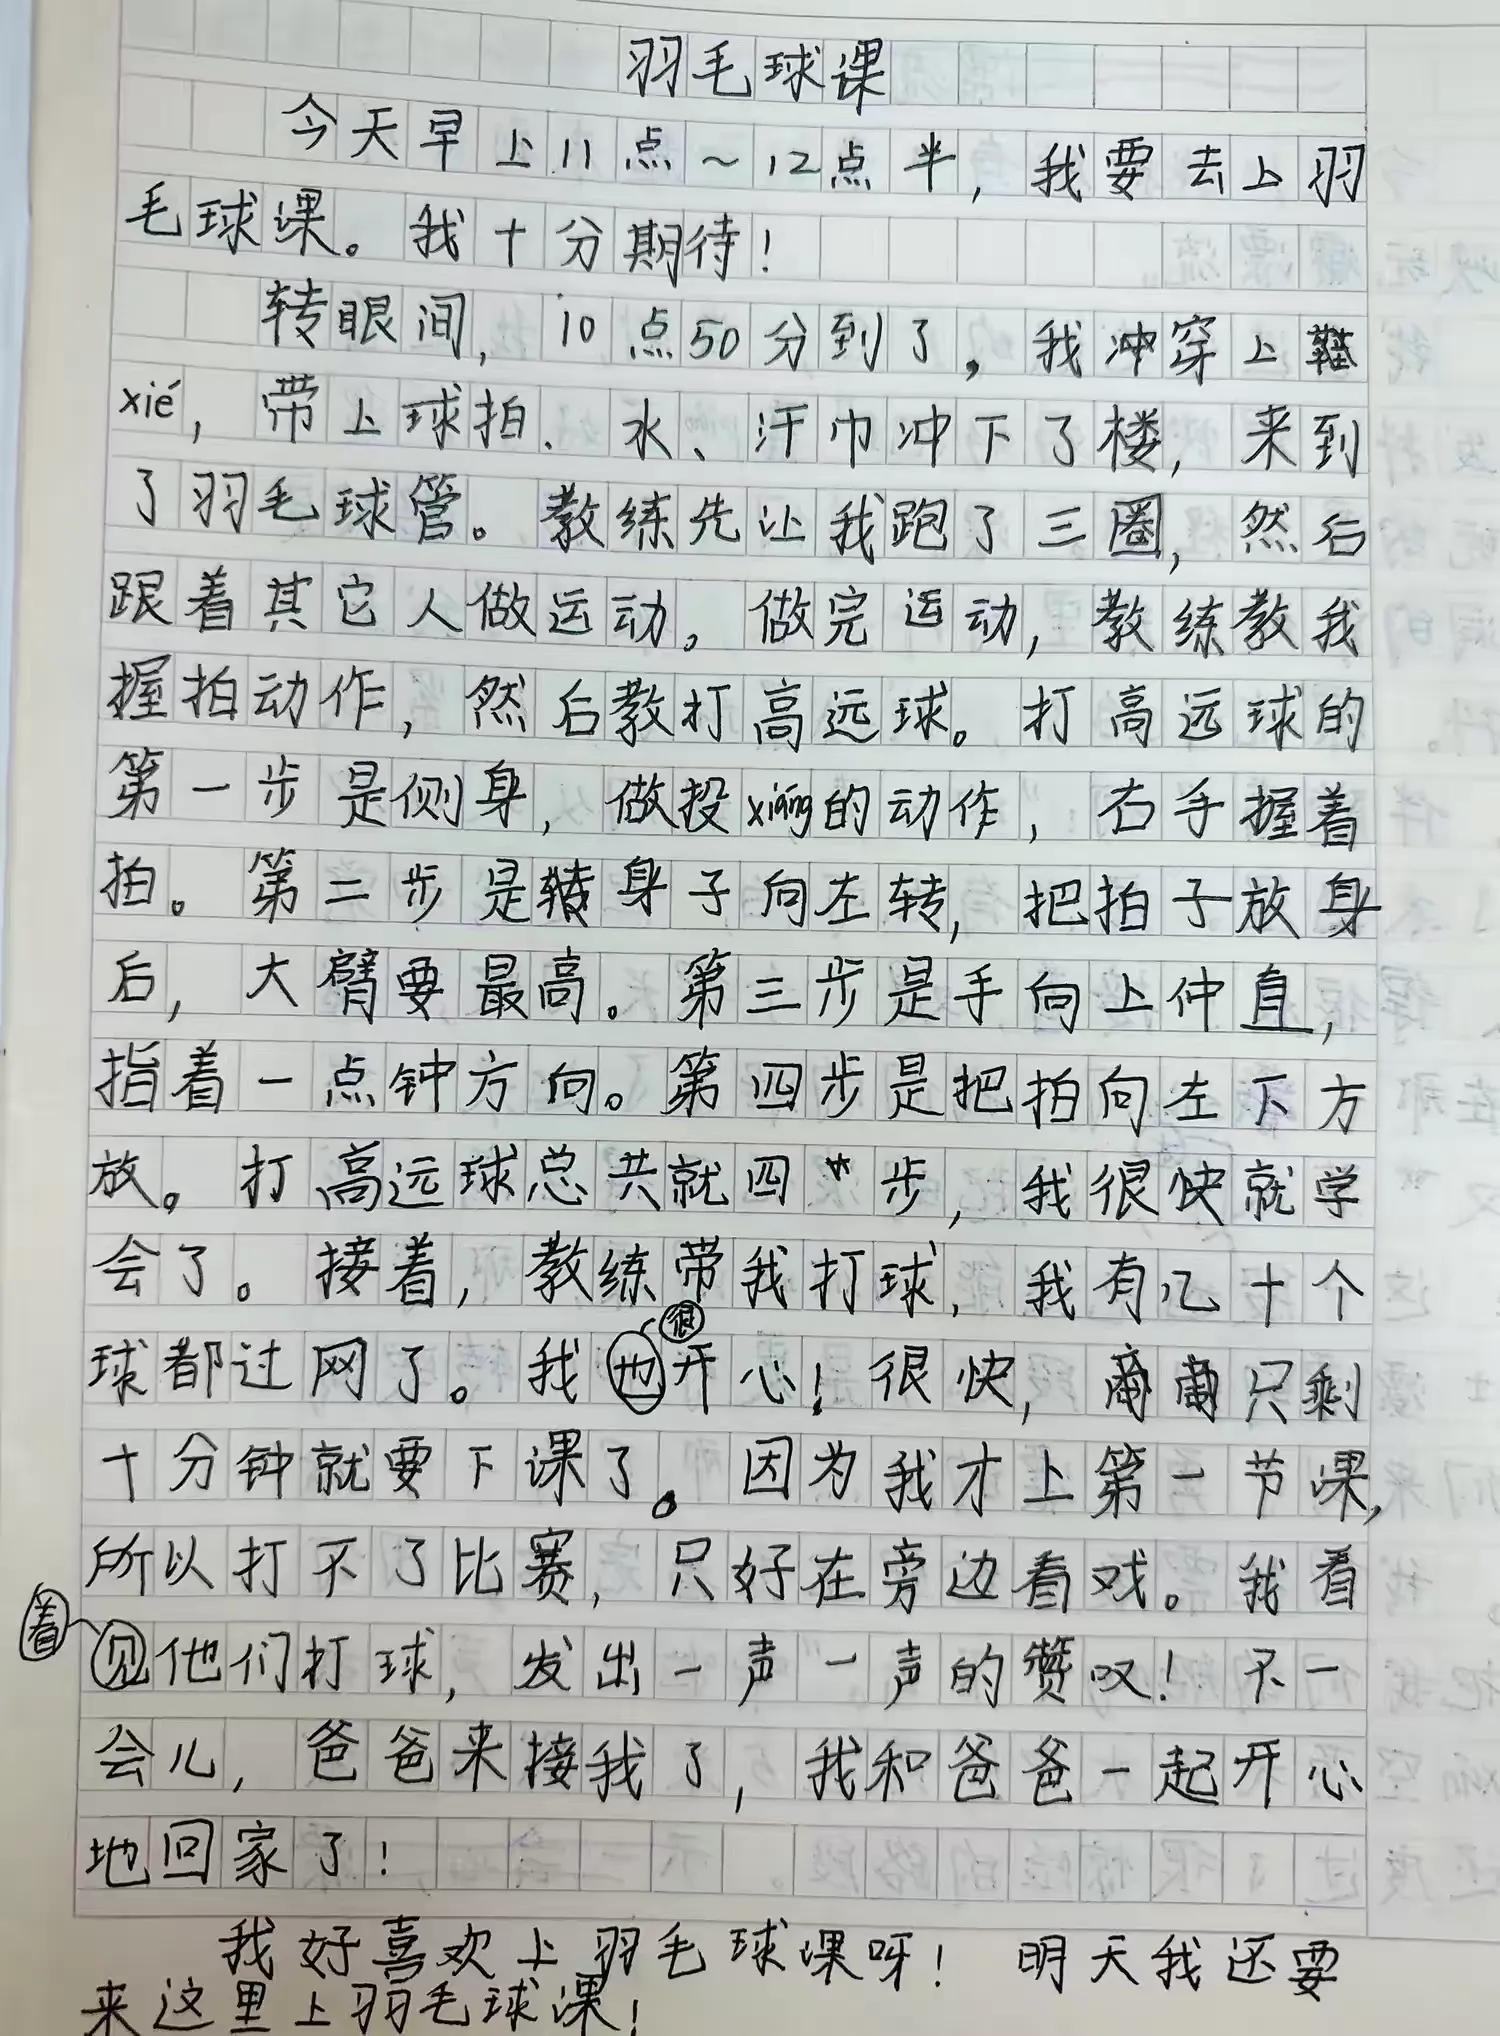 羽毛球课
今天早上11点～12点半，我要去上羽
毛球课。我十分期待！
转眼间，10点50分到了，我冲穿上
xié，带上球拍、水、汗巾冲下了楼，来到
了羽毛球管。教练先让我跑了三圈，然后
跟着其它人做运动。做完运动，教练教我
握拍动作，然后教打高远球。打高远球的
第一步是侧身，做投xiáng的动作，右手握着
拍。第二步是身子向左转，把拍子放身
后，大臂要最高。第三步是手向上仲直，
指着一点钟方向。第四步是把拍向左下方
放。打高远球总共就四步，我很快就学
会了。接着，教练带我打球，我有几十个
很
球都过网了。我地开心！很快，只剩
十分钟就要下课了。因为我才上第一节课，
所以打不了比赛，只好在旁边看戏。我看
着
见他们打球，发出一声一声的赞叹！不一
会儿，爸爸来接我了，我和爸爸一起开心
地回家了！
我好喜欢上羽毛球课呀！明天我还要
来这里上羽毛球课！